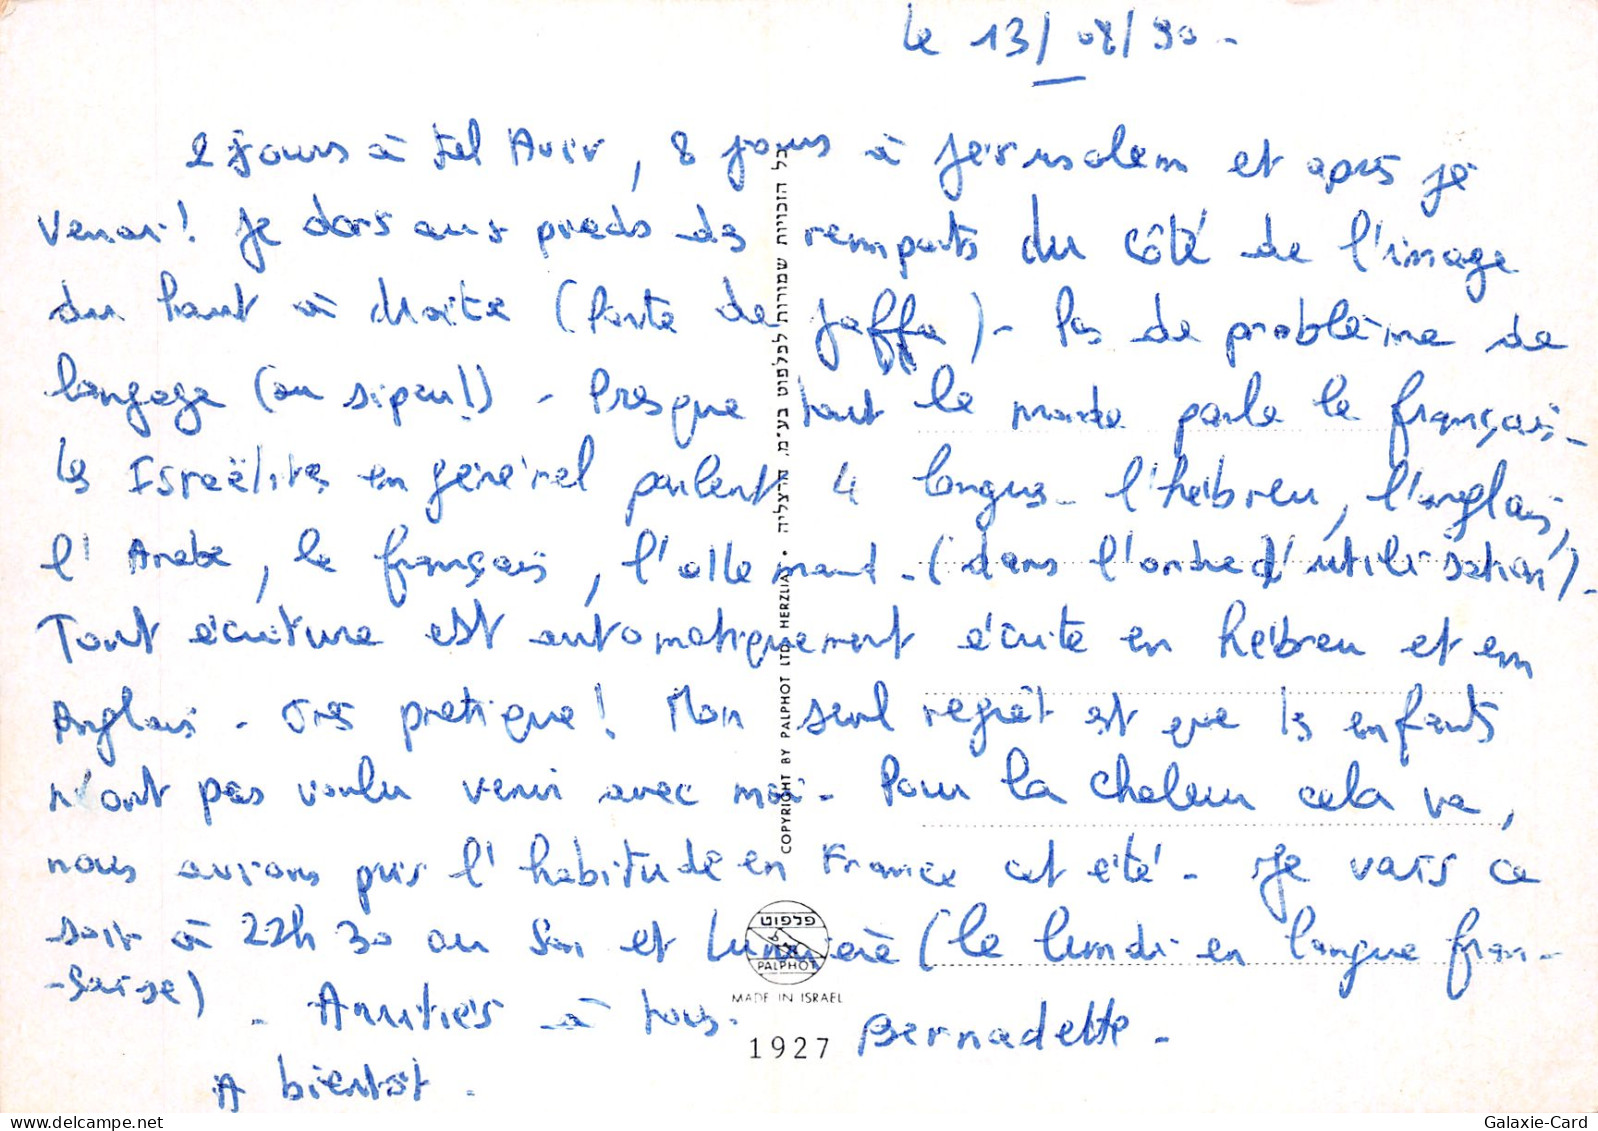 le 13/08/90 -
2 jours à Tel Aviv, 8 jours à Jérusalem et après je
verrai! Je dors aux pieds des remparts du côté de l'image
du haut à droite (Porte de Jaffa) - Pas de problème de
langage (ou si peu!!) - Presque tout le monde parle le français -
les Israëlites en général parlent 4 langues - l'hébreu, l'anglais,
l'Arabe, le français, l'allemand - (dans l'ordre d'utilisation) -
Tout écriture est automatiquement écrite en hébreu et en
Anglais - très pratique! Mon seul regrêt est que les enfants
n'ont pas voulu venir avec moi - Pour la chaleur cela va,
nous avions pris l'habitude en France cet été - Je vais ce
soir à 22h30 au Son et Lumière (le lundi en langue fran-
-çaise)
- Amitiés à tous.
Bernadette -
A bientôt.
כל הזכויות שמורות לפלפוט בע"מ, הרצליה • COPYRIGHT BY PALPHOT LTD. HERZLIA
פלפוט
PALPHOT
MADE IN ISRAEL
1927
Galaxie-Card